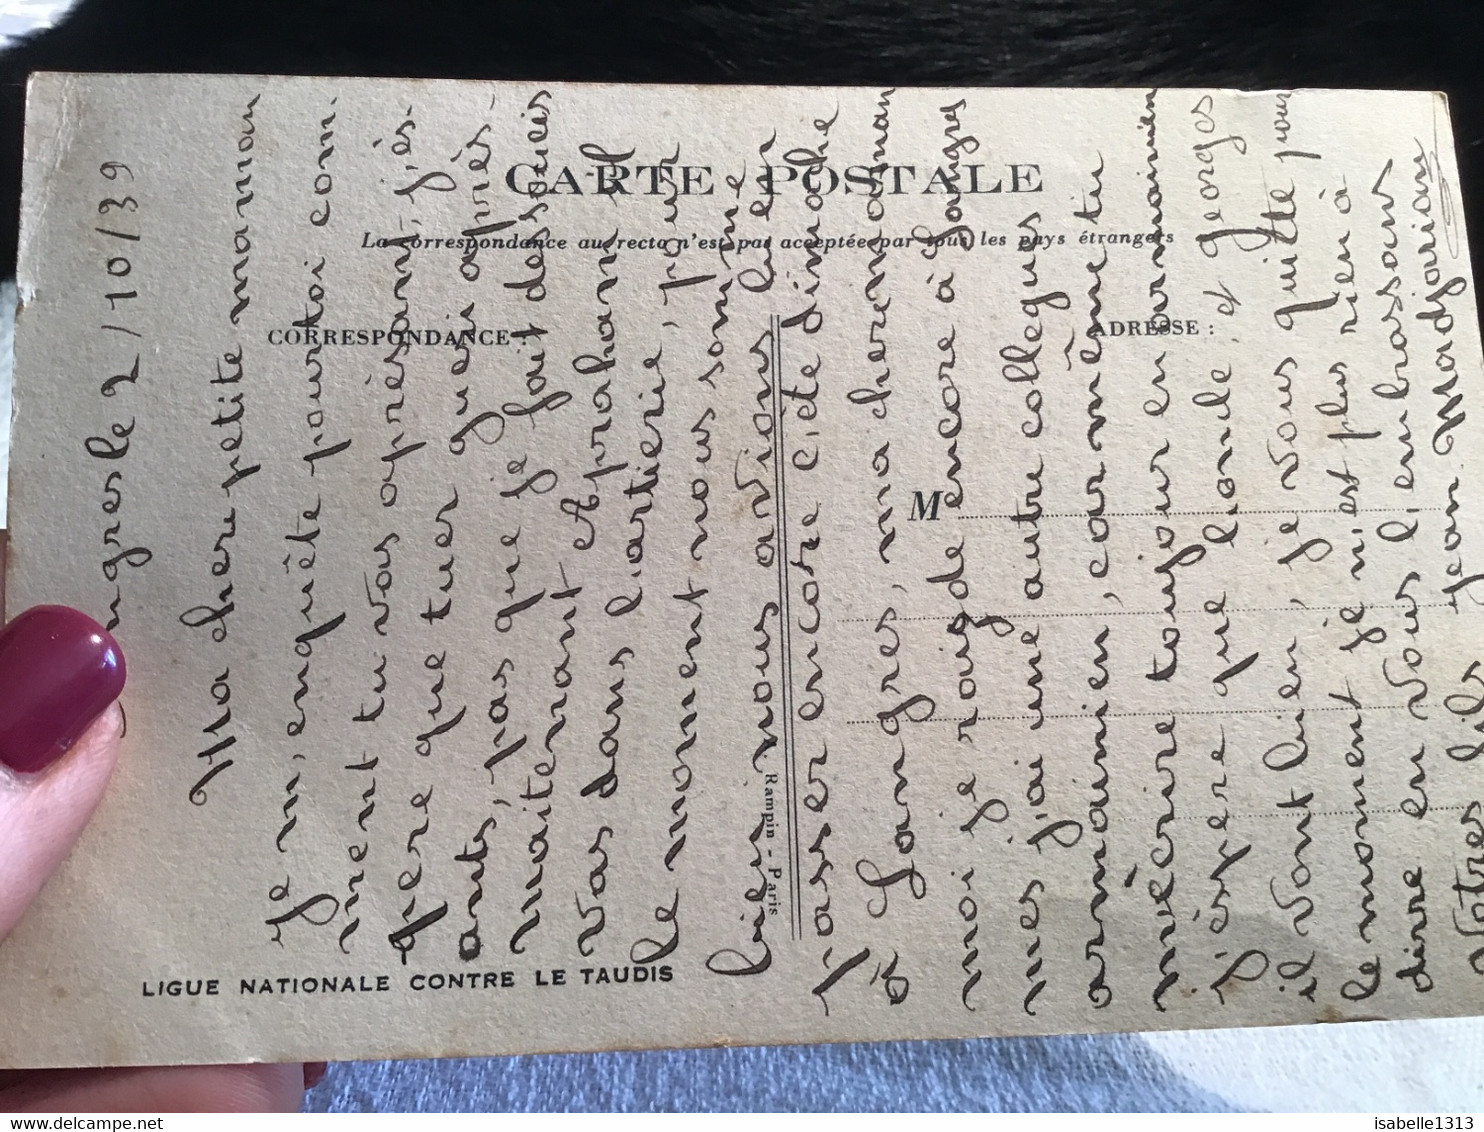 CARTE POSTALE
La correspondance au recto n'est pas acceptée par tous les pays étrangers
CORRESPONDANCE :
ADRESSE :
M
Rampin - Paris
LIGUE NATIONALE CONTRE LE TAUDIS
ngres le 2/10/39
Ma chere petite maman
Je m'enquête pour toi com-
ment tu vas aprésant, j'és-
père que tuer guéri après-
ants, pas que je fait des soucis
maitenant et Apraham il
vas dans l'artierie, pour
le moment nous nous somme
bien nous avions bien
passer encore cète dimache
à Langres, ma cheremaman
moi je rougde encore à Langres
mes j'ai une autre collegues
armamien, car même tu
mècrire toujour en armamien
J'éspere que l'oncle et Georges
il vont bien, je vous quitte pour
le moment je n'est plus rien à
dirre en vous l'embrassant
Votres fils Jean Madjarian
isabelle1313